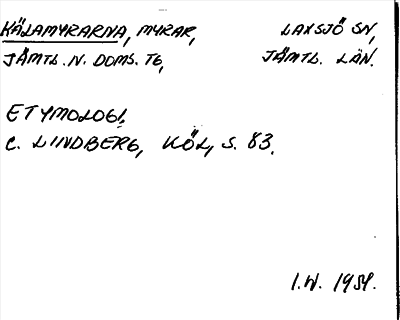 KÄLAMYRARNA, MYRAR, LAXSJÖ SN,
JÄMTL. N. DOMS. TG, JÄMTL. LÄN.
ETYMOLOGI,
C. LINDBERG, KÖL, S. 83.
I.W. 1951.